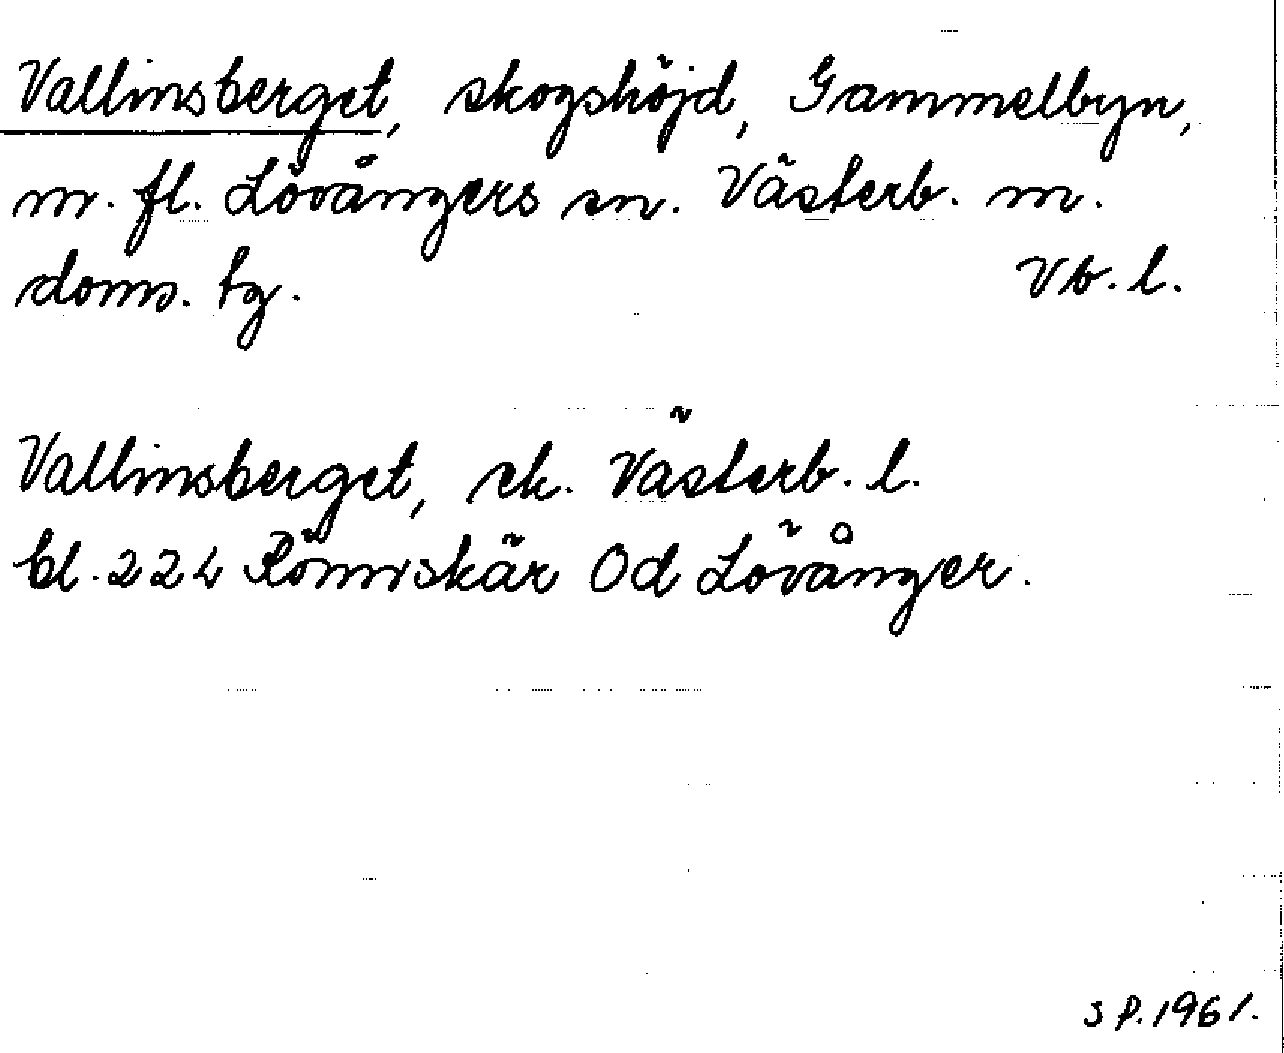 Vallinsberget, skogshöjd, Gammelbyn,
m. fl. Lövångers sn. Västerb. m.
doms. tg. Vb. l.
Vallinsberget, ek. Västerb. l.
bl. 224 Rönnskär Od Lövånger.
S P. 1961.